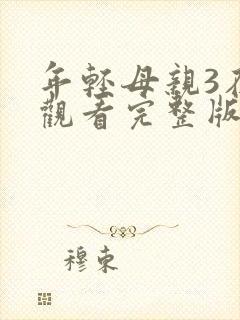 年輕母親3在
觀看完整版
穆東